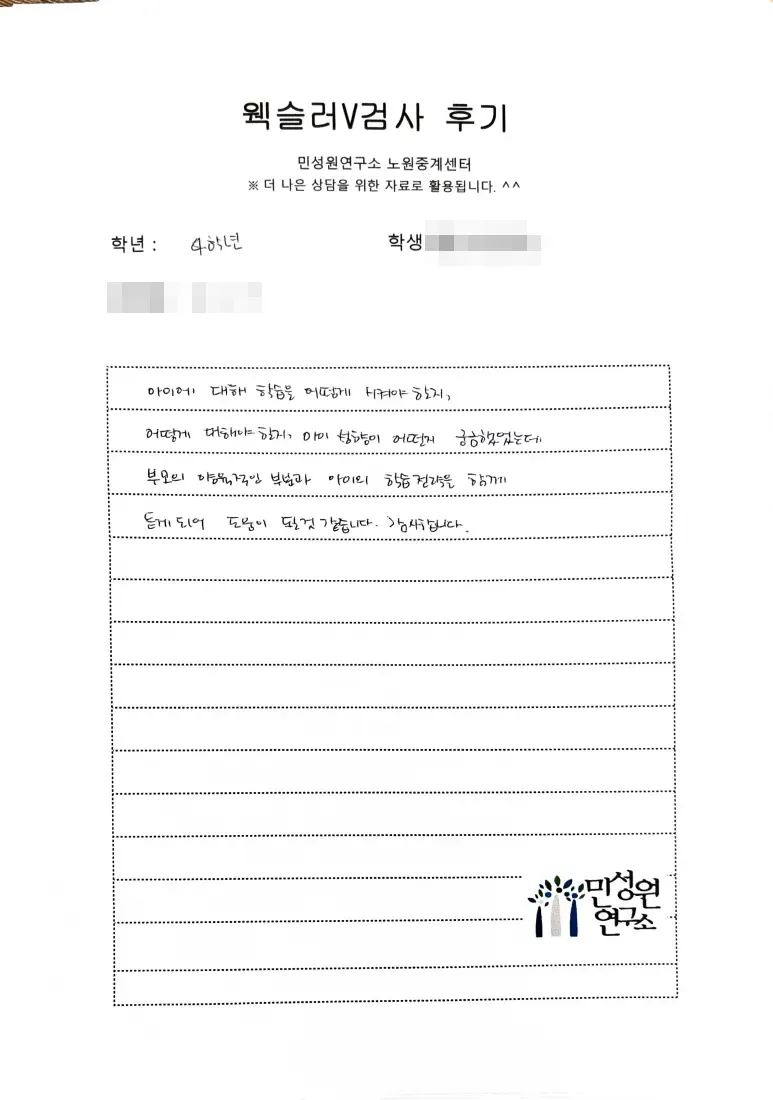 웩슬러V검사 후기
민성원연구소 노원중계센터
※ 더 나은 상담을 위한 자료로 활용됩니다. ^^
학년 : 4학년
학생
아이에 대해 학습을 어떻게 시켜야 할지,
어떻게 대해야 할지, 아이 성향이 어떤지 궁금했었는데
부모의 양육적인 부분과 아이의 학습전략을 함께
듣게 되어 도움이 될것 같습니다. 감사합니다.
민성원
연구소